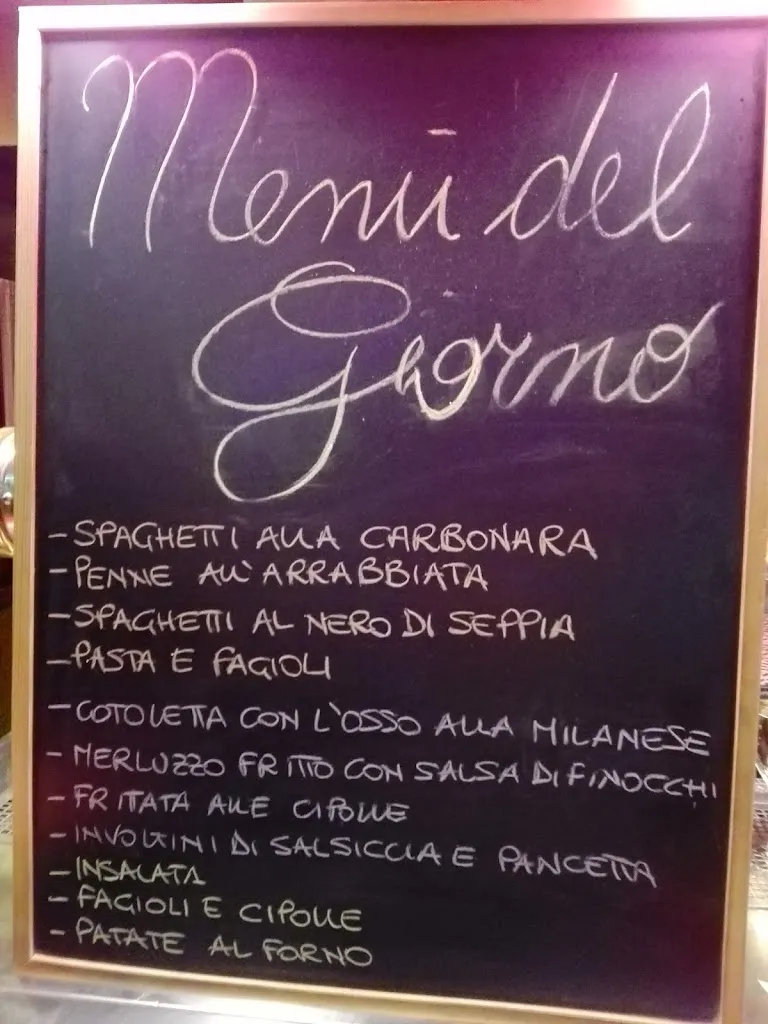 Menù del
Giorno
- SPAGHETTI ALLA CARBONARA
- PENNE ALL'ARRABBIATA
- SPAGHETTI AL NERO DI SEPPIA
- PASTA E FAGIOLI
- COTOLETTA CON L'OSSO ALLA MILANESE
- MERLUZZO FRITTO CON SALSA DI FINOCCHI
- FRITTATA ALLE CIPOLLE
- INVOLTINI DI SALSICCIA E PANCETTA
- INSALATA
- FAGIOLI E CIPOLLE
- PATATE AL FORNO